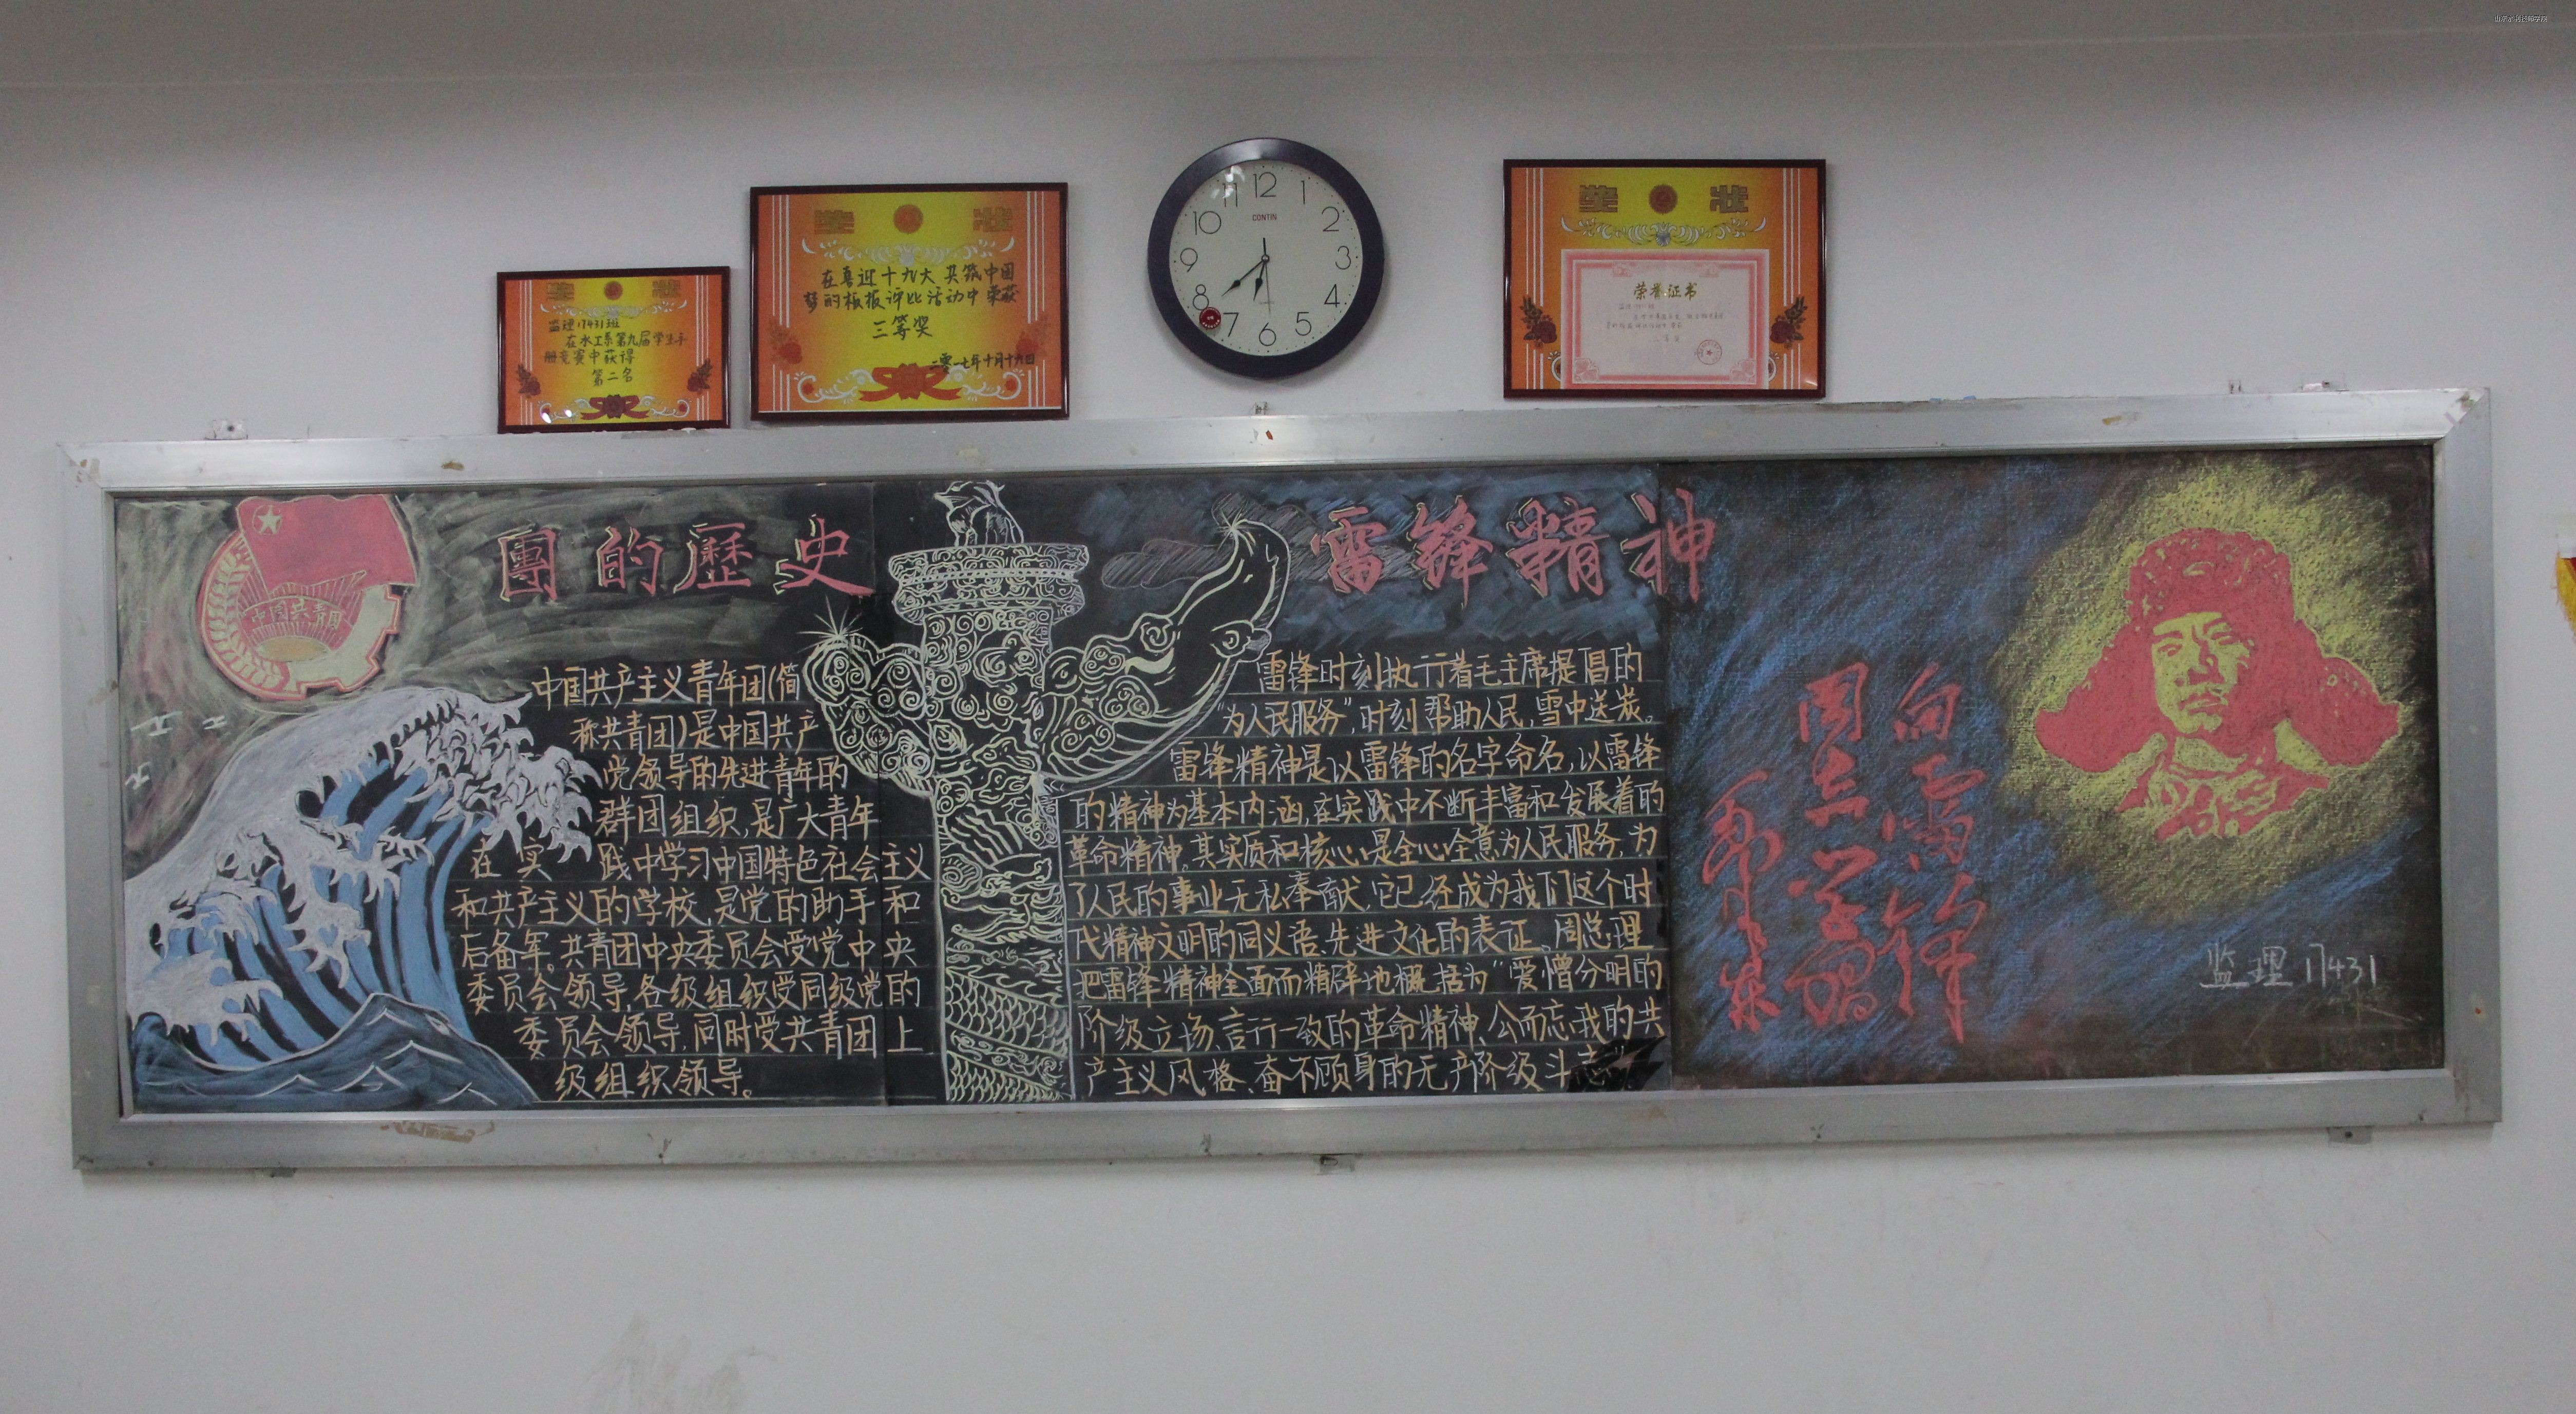 奖 状
监理17431班
在水工系第九届学生手
册竞赛中获得
第二名
奖 状
在喜迎十九大 共筑中国
梦的板报评比活动中 荣获
三等奖
二零一七年十月十六日
12
1
2
3
4
5
6
7
8
9
10
11
CONTIN
奖 状
荣誉证书
中国共青团
團的歷史
中国共产主义青年团(简
称共青团)是中国共产
党领导的先进青年的
群团组织,是广大青年
在实 践中学习中国特色社会主义
和共产主义的学校,是党的助手和
后备军。共青团中央委员会受党中央
委员会领导,各级组织受同级党的
委员会领导,同时受共青团上
级组织领导。
雷锋精神
雷锋时刻执行着毛主席提倡的
“为人民服务”,时刻帮助人民,雪中送炭。
雷锋精神是以雷锋的名字命名,以雷锋
的精神为基本内涵,在实践中不断丰富和发展着的
革命精神。其实质和核心是全心全意为人民服务,为
了人民的事业无私奉献,它已经成为我们这个时
代精神文明的同义语、先进文化的表证。周总理
把雷锋精神全面而精辟地概括为“爱憎分明的
阶级立场、言行一致的革命精神、公而忘我的共
产主义风格、奋不顾身的无产阶级斗志”
向雷锋
同志学习
毛泽东
监理17431